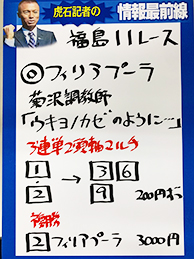 虎石記者の
情報最前線
福島11レース
◎フィリアプーラ
菊沢調教師
「ウキヨノカゼのように…」
3連単2頭軸マルチ
1 → 3 6
2 9 200円ずつ
複勝
2 フィリアプーラ 3000円